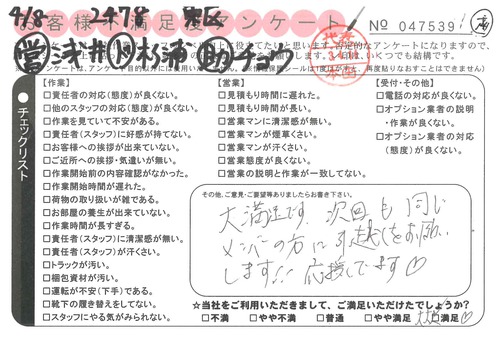 4/8 2478
お客様不満足度アンケート
No 047539
営 浅井 杉浦 助 チョウ
チェックリスト
【作業】
□責任者の対応(態度)が良くない。
□他のスタッフの対応(態度)が良くない。
□作業を見ていて不安がある。
□責任者(スタッフ)に好感が持てない。
□お客様への挨拶が出来ていない。
□ご近所への挨拶・気遣いが無い。
□作業開始前の内容確認がなかった。
□作業開始時間が遅れた。
□荷物の取り扱いが雑である。
□お部屋の養生が出来ていない。
□作業時間が長すぎる。
□責任者(スタッフ)に清潔感が無い。
□責任者(スタッフ)が汗くさい。
□トラックが汚い。
□梱包資材が汚い。
□運転が不安(下手)である。
□靴下の履き替えをしてない。
□スタッフにやる気が感じられない。
【営業】
□見積もり時間に遅れた。
□見積もり時間が長い。
□営業マンに清潔感が無い。
□営業マンが煙草くさい。
□営業マンが汗くさい。
□営業態度が良くない。
□営業の説明と作業が一致してない。
【受付・その他】
□電話の対応が良くない。
□オプション業者の説明
・作業が良くない。
□オプション業者の対応
(態度)が良くない。
その他、ご意見・ご要望等ありましたらお書き下さい。
大満足です。次回も同じ
メンバーの方に引越しをお願い
します!! 応援してます♡
☆当社をご利用いただきまして、ご満足いただけたでしょうか?
□不満 □やや不満 □普通 □やや満足 □満足♡